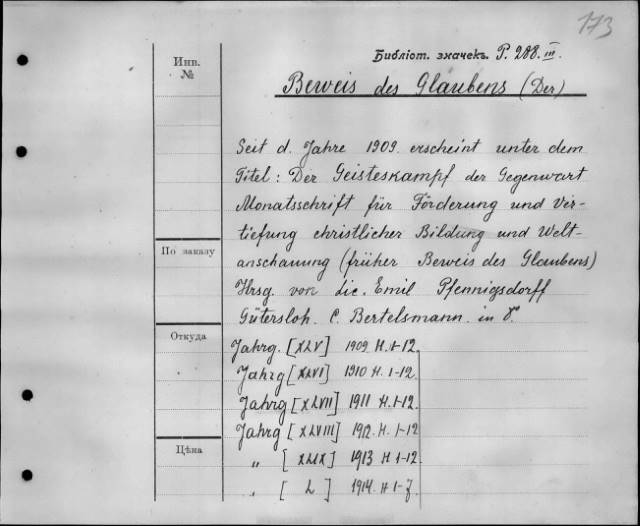 173
Инв. №
Библіот. значекъ. P. 288. III.
Beweis des Glaubens (Der)
Seit d. Jahre 1909. erscheint unter dem
Titel: Der Geisteskampf der Gegenwart
Monatsschrift für Förderung und Ver-
tiefung christlicher Bildung und Welt-
anschauung (früher Beweis des Glaubens)
Hrsg. von Lic. Emil Pfennigsdorff
Gütersloh. C. Bertelsmann. in 8.
По заказу
Откуда
Цѣна
Jahrg. [XLV] 1909. H. 1-12.
Jahrg [XLVI] 1910 H. 1-12.
Jahrg [XLVII] 1911 H. 1-12.
Jahrg [XLVIII] 1912. H. 1-12
„ [XLIX] 1913 H 1-12.
„ [L] 1914. H 1-7.